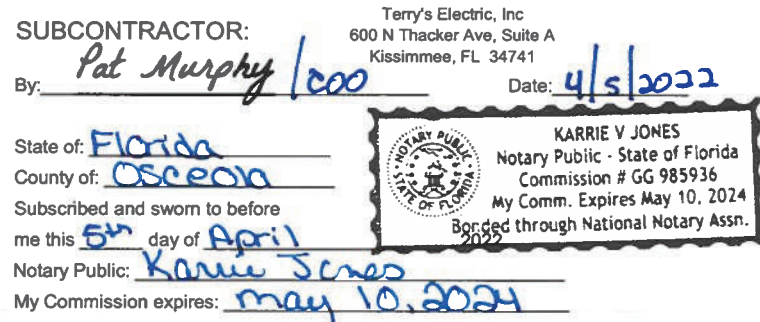 Terry's Electric, Inc
SUBCONTRACTOR:
600 N Thacker Ave, Suite A
Kissimmee, FL 34741
By: Pat Murphy / COO
Date: 4/5/2022
State of: Florida
County of: Osceola
Subscribed and sworn to before
me this 5th day of April 2022
Notary Public: Karrie Jones
My Commission expires: May 10, 2024
NOTARY PUBLIC
STATE OF FLORIDA
KARRIE V JONES
Notary Public - State of Florida
Commission # GG 985936
My Comm. Expires May 10, 2024
Bonded through National Notary Assn.